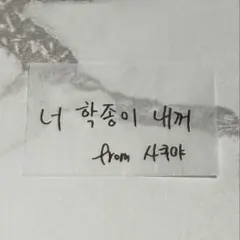 너 학종이 내꺼
from 사쿠야